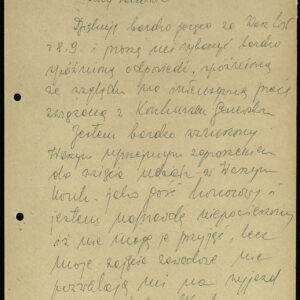 Dziękuję bardzo gorąco za Wasz list
z 8.9. i proszę mi wybaczyć bardzo
spóźnioną odpowiedź, spóźnioną
ze względu na nieustanną pracę
związaną z Konkursem Genewskim
Jestem bardzo wzruszony
Waszym uprzejmym zaproszeniem
do wzięcia udziału w Waszym
Konk. jako gość honorowy i
jestem naprawdę niepocieszony
iż nie mogę je przyjąć, lecz
moje zajęcia zawodowe nie
pozwalają mi na wyjazd